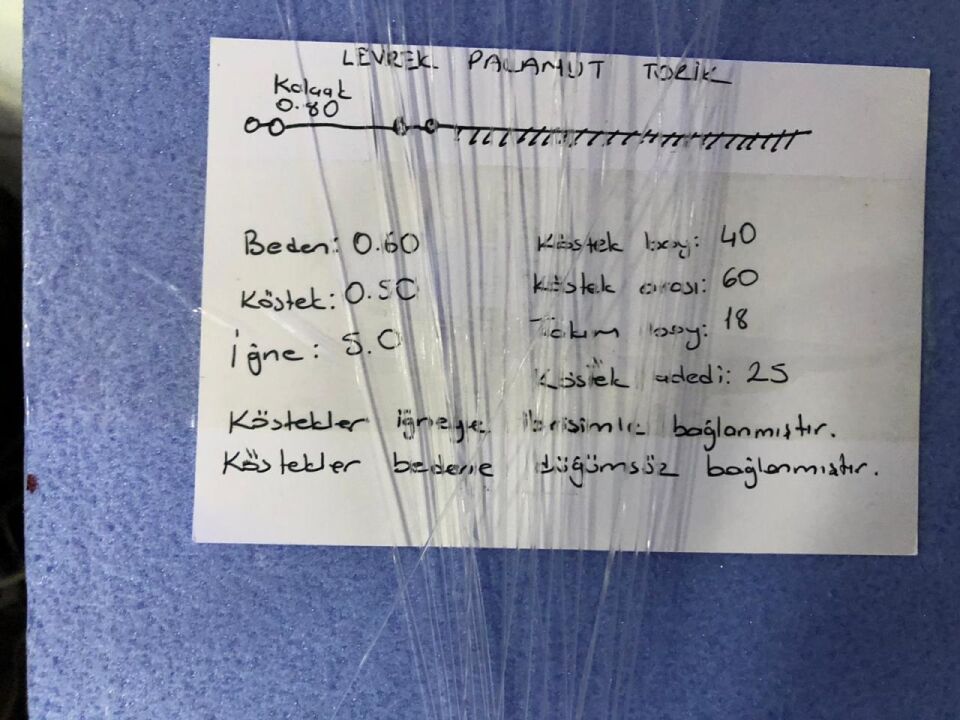 LEVREK PALAMUT TORİK
Kolçak
0.80
Beden: 0.60
Köstek boy: 40
Köstek: 0.50
Köstek arası: 60
İğne: 5.0
Takım boy: 18
Köstek adedi: 25
Köstekler iğneye ibrişimle bağlanmıştır.
Köstekler bedene düğümsüz bağlanmıştır.